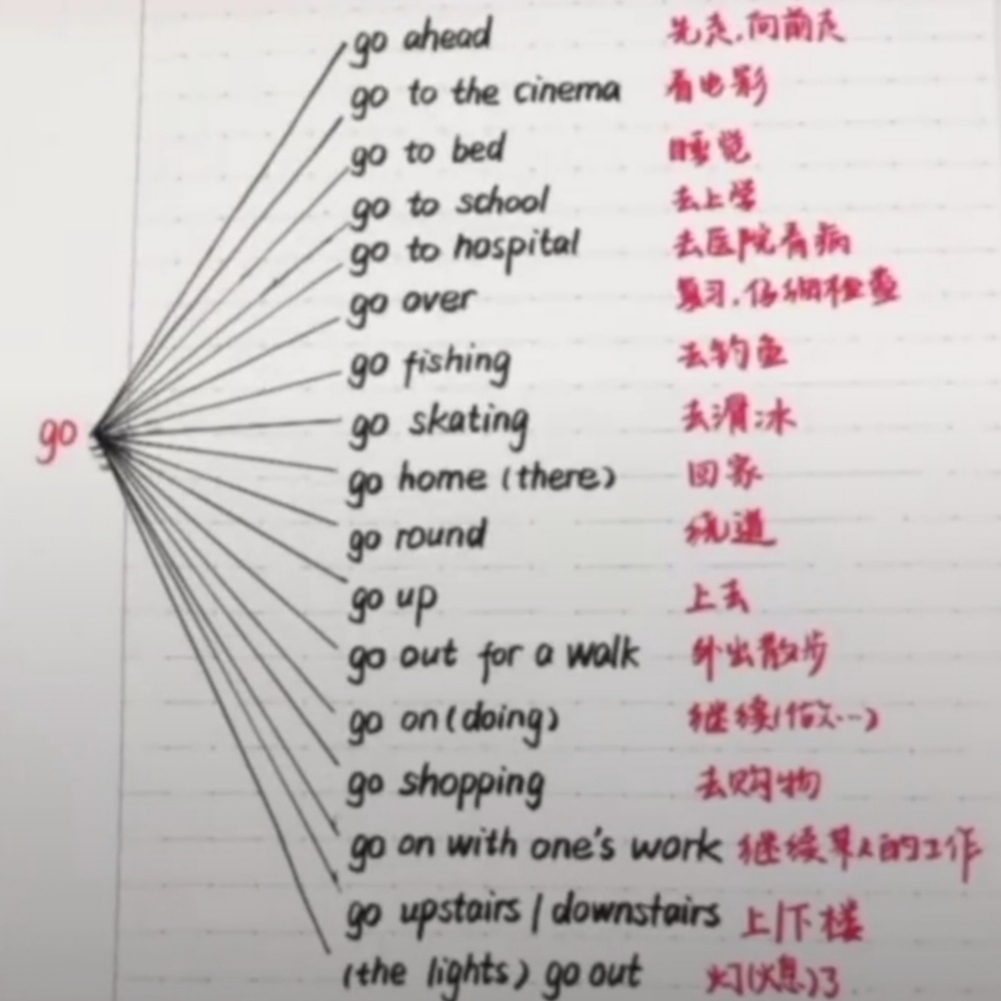 go ahead 先走,向前走
go to the cinema 看电影
go to bed 睡觉
go to school 去上学
go to hospital 去医院看病
go over 复习,仔细检查
go fishing 去钓鱼
go skating 去滑冰
go
go home (there) 回家
go round 绕道
go up 上去
go out for a walk 外出散步
go on (doing) 继续(做…)
go shopping 去购物
go on with one's work 继续某人的工作
go upstairs / downstairs 上/下楼
(the lights) go out 灯(熄)了